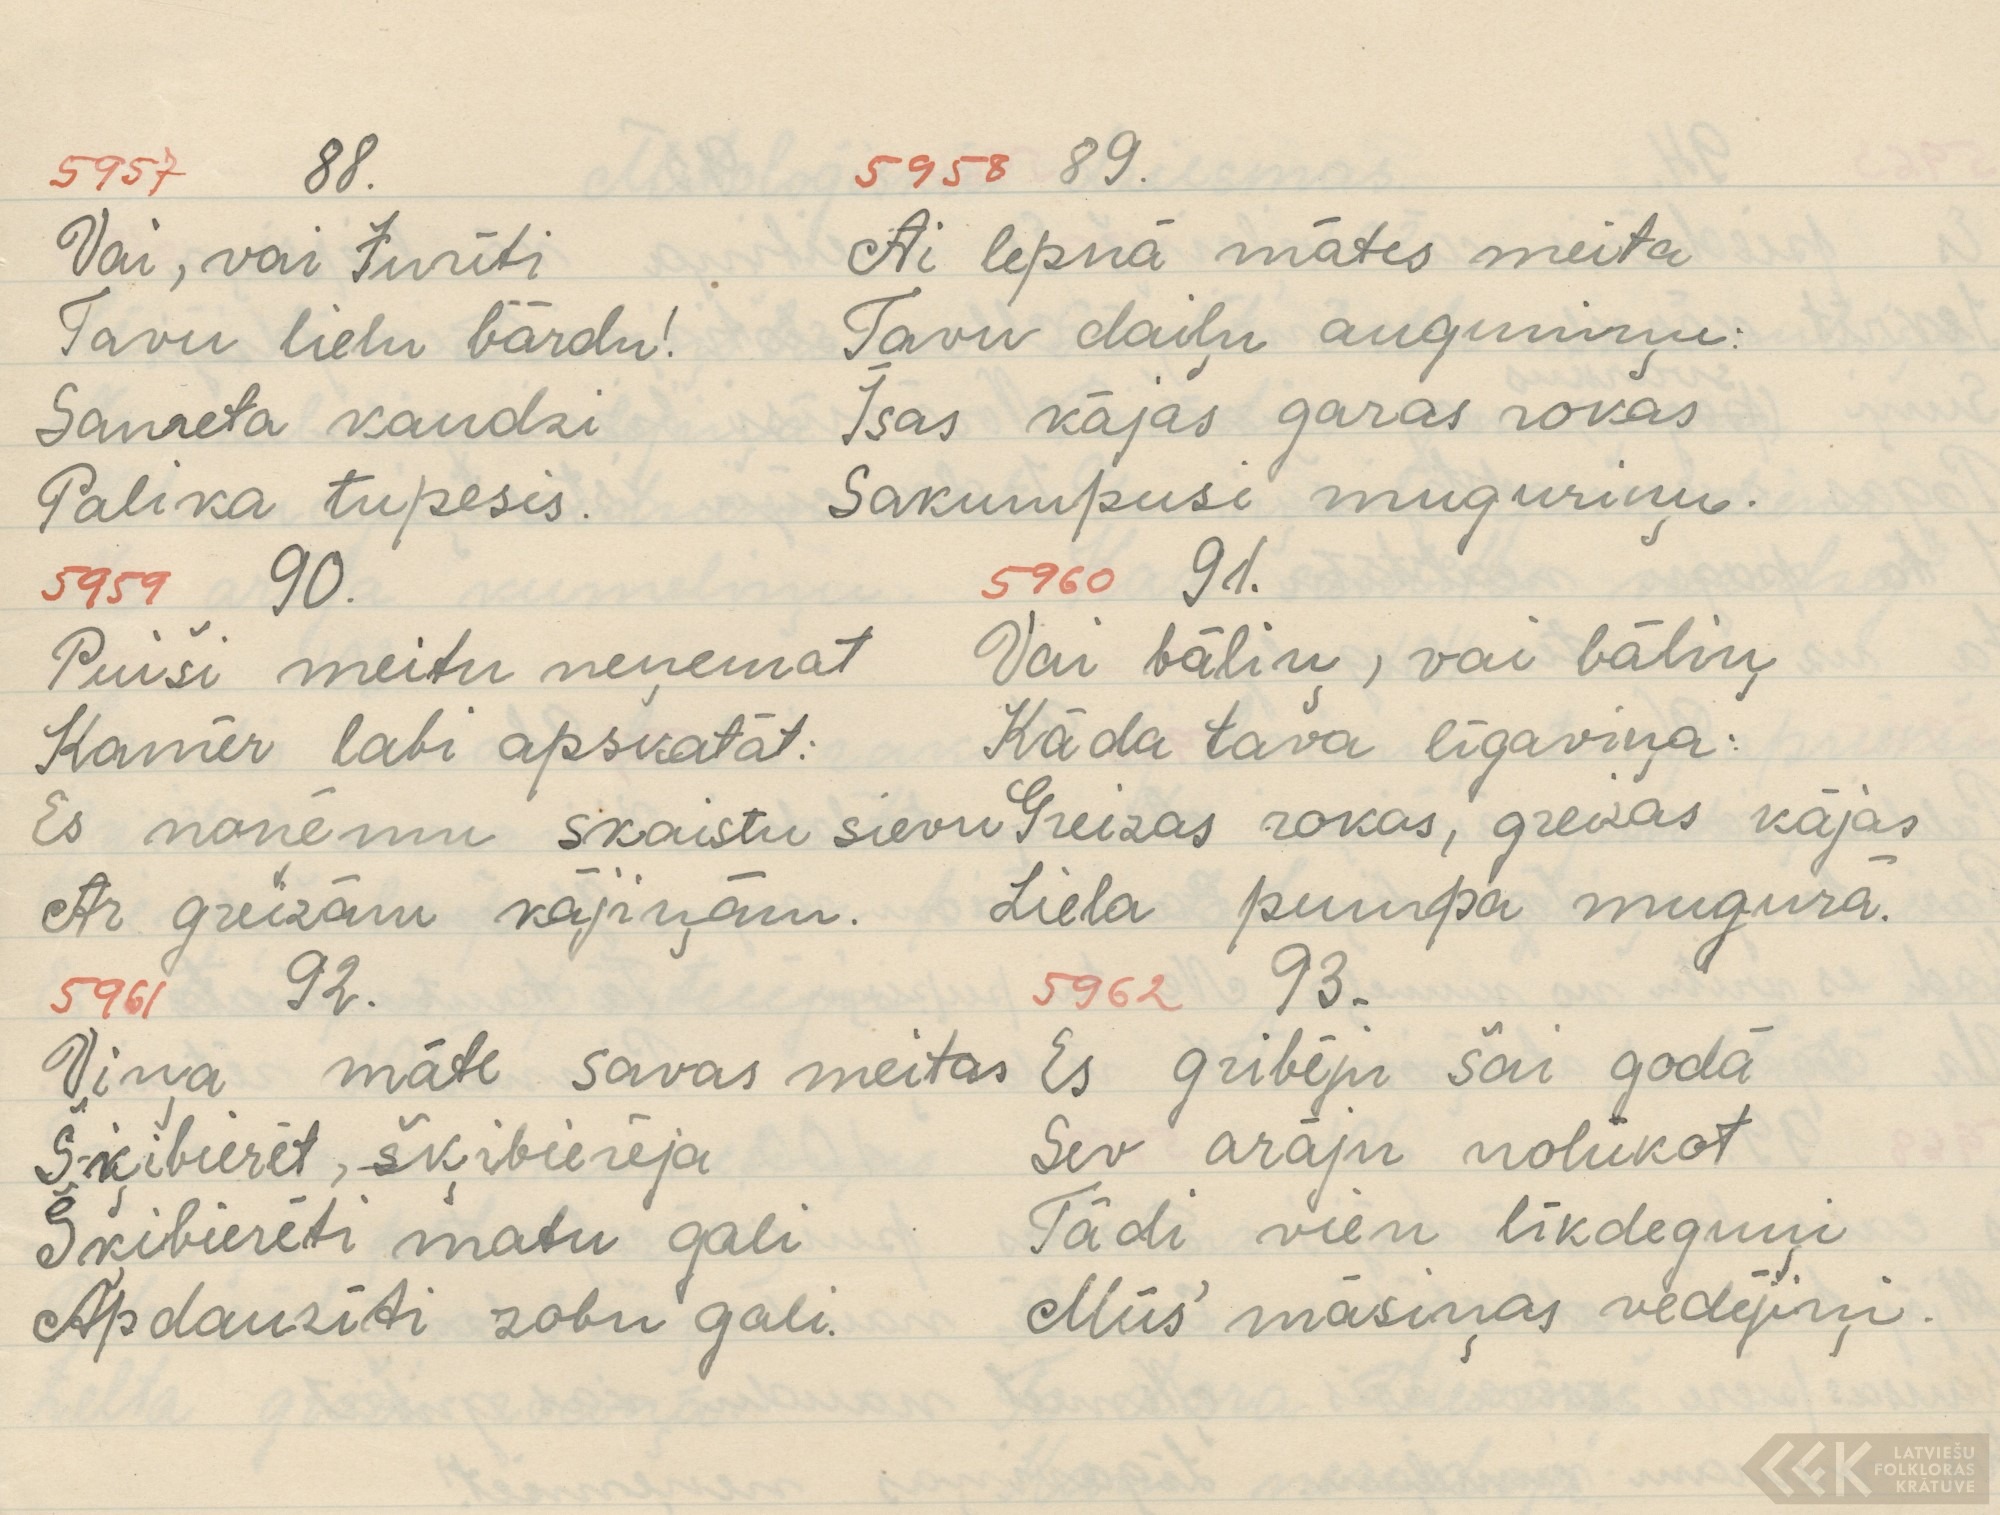 5957 88.
Vai, vai Jurīti
Tavu lielu bārdu!
Sanreta kaudzi
Palika tupesis.
5958 89.
Ai lepnā mātes meita
Tavu daiļu auguminņu:
Īsas kājas garas rokas
Sakumpusi muguriņu.
5959 90.
Puiši meitu neņemat
Kamēr labi apskatāt:
Es noņēmu skaistu sievu
Ar greizām kājiņām.
5960 91.
Vai bāliņ, vai bāliņ
Kāda tava līgaviņa:
Greizas rokas, greizas kājas
Liela pumpa mugurā.
5961 92.
Viņa māte savas meitas
Šķibierēt, šķibierēja
Šķibierēti matu gali
Apdauzīti zobu gali.
5962 93.
Es gribēju šai godā
Sev arāju nolūkot
Tādi vien līkdeguņi
Mūs' māsiņas vedējiņi.
LATVIEŠU
FOLKLORAS
KRĀTUVE